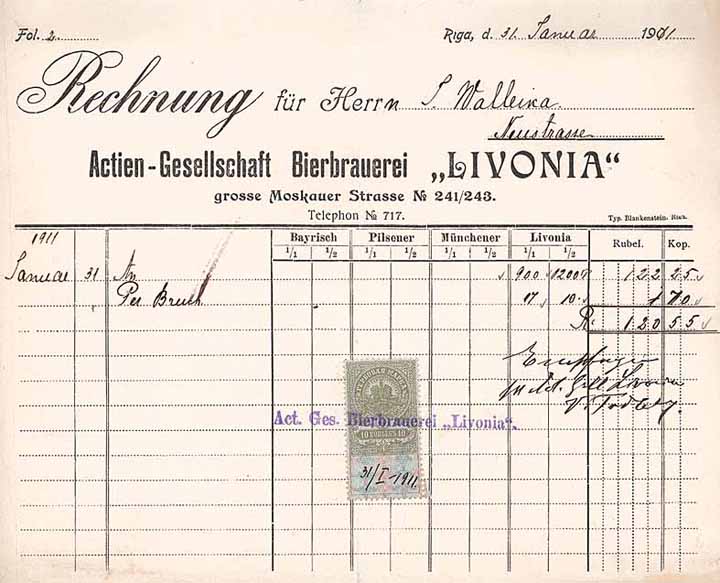 Fol. 2
Riga, d. 31. Januar 1911
Rechnung für Herrn S. Walleika.
Neustrasse
Actien-Gesellschaft Bierbrauerei „LIVONIA“
grosse Moskauer Strasse № 241/243.
Telephon № 717.
Typ. Blankenstein. Riga.
Bayrisch Pilsener Münchener Livonia Rubel. Kop.
1/1 1/2 1/1 1/2 1/1 1/2 1/1 1/2
1911
Januar 31 An 900 1200 122 25
Per Bruch 17 10 1 70
R. 120 55
Empfangen
Livonia
Act. Ges. Bierbrauerei „Livonia“.
10 10
31/I-1911